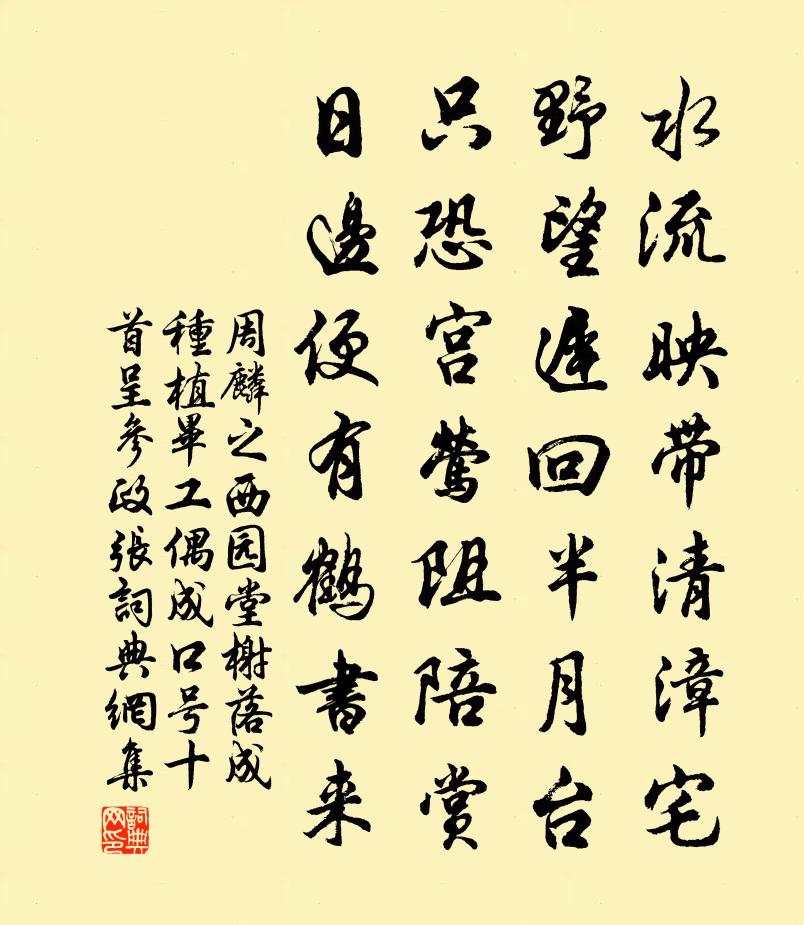 水流映带清漳宅
野望遲回半月台
只恐宫鶯阻陪赏
日邊便有鹤書来
周麟之西园堂榭落成
種植畢工偶成口号十
首呈参政張詞典網集
詞典网印